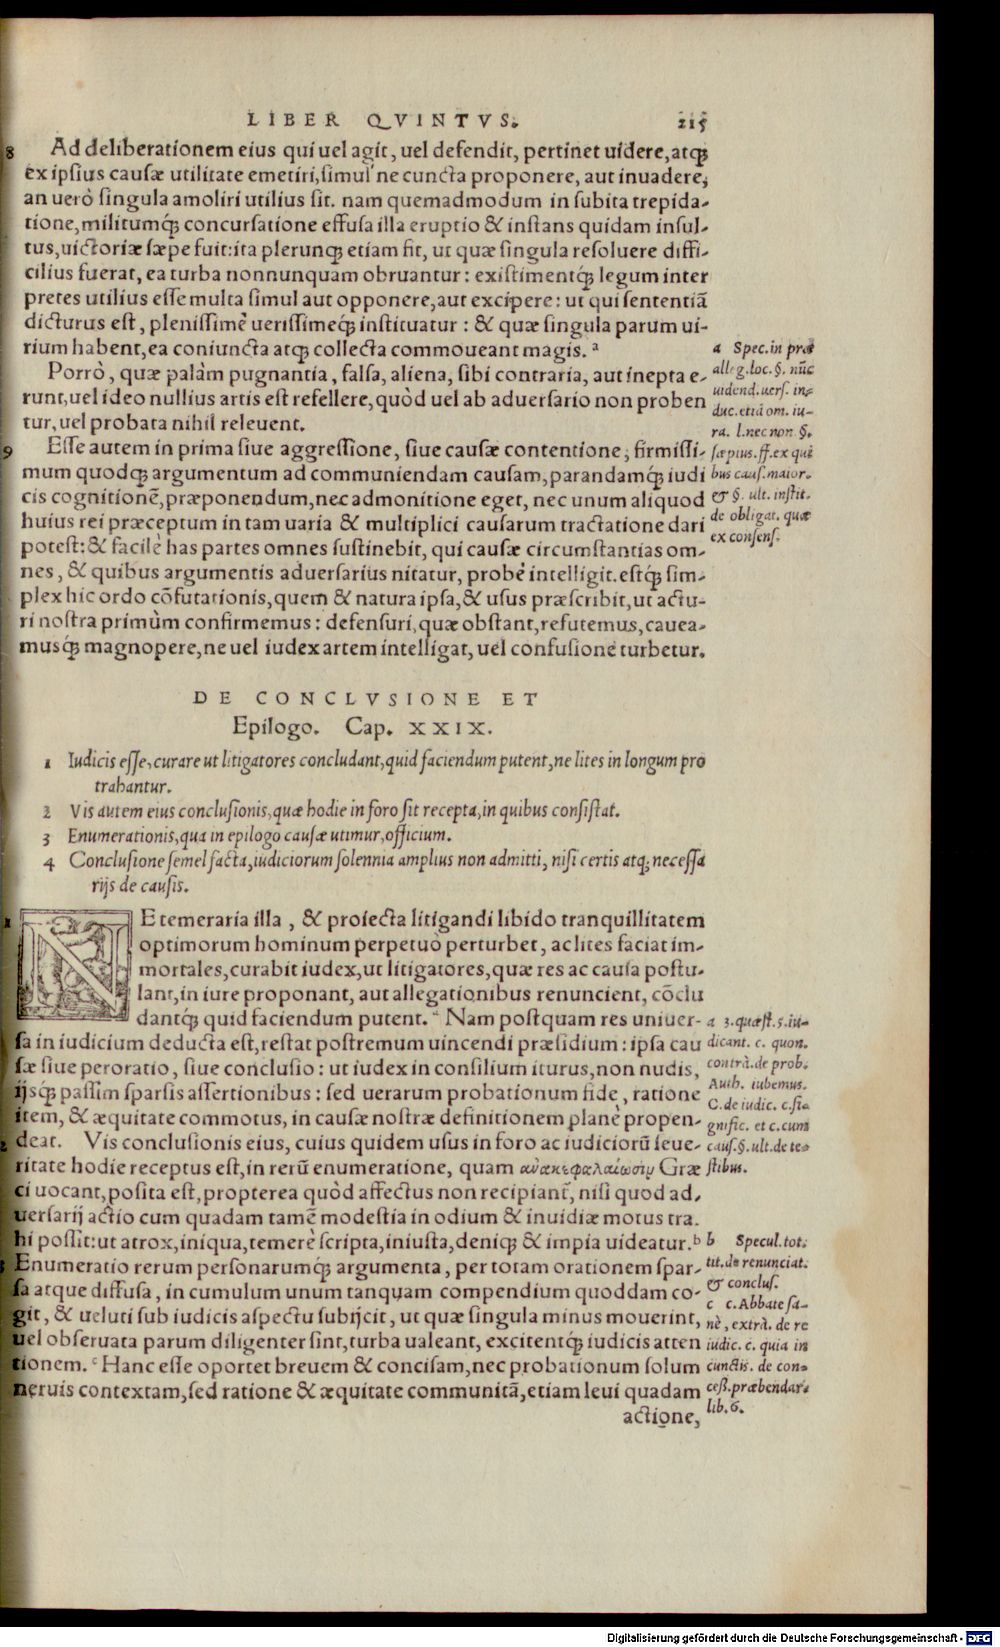 LIBER QVINTVS. 215
8 Ad deliberationem eius qui uel agit, uel defendit, pertinet uidere, atq́;
ex ipsius causæ utilitate emetiri, simul ne cuncta proponere, aut inuadere,
an uerò singula amoliri utilius sit. nam quemadmodum in subita trepida-
tione, militumq́; concursatione effusa illa eruptio & instans quidam insul-
tus, uictoriæ sæpe fuit: ita plerunq; etiam fit, ut quæ singula resoluere diffi-
cilius fuerat, ea turba nonnunquam obruantur: existimentq́; legum inter
pretes utilius esse multa simul aut opponere, aut excipere: ut qui sententiã
dicturus est, plenissimè uerissimeq́; instituatur: & quæ singula parum ui-
rium habent, ea coniuncta atq; collecta commoueant magis. a
Porrò, quæ palàm pugnantia, falsa, aliena, sibi contraria, aut inepta e-
runt, uel ideo nullius artis est refellere, quòd uel ab aduersario non proben
tur, uel probata nihil releuent.
9 Esse autem in prima siue aggressione, siue causæ contentione, firmissi-
mum quodq; argumentum ad communiendam causam, parandamq́; iudi
cis cognitionẽ, præponendum, nec admonitione eget, nec unum aliquod
huius rei præceptum in tam uaria & multiplici causarum tractatione dari
potest: & facilè has partes omnes sustinebit, qui causæ circumstantias om-
nes, & quibus argumentis aduersarius nitatur, probè intelligit. estq́; sim-
plex hic ordo cõfutationis, quem & natura ipsa, & usus præscribit, ut actu-
ri nostra primùm confirmemus: defensuri, quæ obstant, refutemus, cauea-
musq́; magnopere, ne uel iudex artem intelligat, uel confusione turbetur.
a Spec. in præ
alleg. loc. §. nũc
uidend. uers. in-
duc. etiã om. iu-
ra. l. nec non §.
sæpius. ff. ex qui
bus caus. maior.
& §. ult. instit.
de obligat. quæ
ex consens.
DE CONCLVSIONE ET
Epilogo. Cap. XXIX.
1 Iudicis esse, curare ut litigatores concludant, quid faciendum putent, ne lites in longum pro
trahantur.
2 Vis autem eius conclusionis, quæ hodie in foro sit recepta, in quibus consistat.
3 Enumerationis, qua in epilogo causæ utimur, officium.
4 Conclusione semel facta, iudiciorum solennia amplius non admitti, nisi certis atq; necessa
rijs de causis.
1 NE temeraria illa, & proiecta litigandi libido tranquillitatem
optimorum hominum perpetuò perturbet, ac lites faciat im-
mortales, curabit iudex, ut litigatores, quæ res ac causa postu-
lant, in iure proponant, aut allegationibus renuncient, cõclu
dantq́; quid faciendum putent. a Nam postquam res uniuer-
sa in iudicium deducta est, restat postremum uincendi præsidium: ipsa cau
sæ siue peroratio, siue conclusio: ut iudex in consilium iturus, non nudis,
ijsq́; passim sparsis assertionibus: sed uerarum probationum fide, ratione
item, & æquitate commotus, in causæ nostræ definitionem planè propen-
2 deat. Vis conclusionis eius, cuius quidem usus in foro ac iudiciorũ seue-
ritate hodie receptus est, in rerũ enumeratione, quam ἀνακεφαλαίωσιν Græ
ci uocant, posita est, propterea quòd affectus non recipiant̃, nisi quod ad-
uersarij actio cum quadam tamẽ modestia in odium & inuidiæ motus tra-
hi possit: ut atrox, iniqua, temerè scripta, iniusta, deniq; & impia uideatur. b
3 Enumeratio rerum personarumq́; argumenta, per totam orationem spar-
sa atque diffusa, in cumulum unum tanquam compendium quoddam co-
git, & ueluti sub iudicis aspectu subijcit, ut quæ singula minus mouerint,
uel obseruata parum diligenter sint, turba ualeant, excitentq́; iudicis atten
tionem. c Hanc esse oportet breuem & concisam, nec probationum solum
neruis contextam, sed ratione & æquitate communitã, etiam leui quadam
actione,
a 3. quæst. 5. iu-
dicant. c. quon.
contrà. de prob.
Auth. iubemus.
C. de iudic. c. si-
gnific. et c. cum
caus. §. ult. de te-
stibus.
b Specul. tot.
tit. de renunciat.
& conclus.
c c. Abbate sa-
nè, extrà. de re
iudic. c. quia in
cunctis. de con-
ceß. præbendar.
lib. 6.
Digitalisierung gefördert durch die Deutsche Forschungsgemeinschaft - DFG